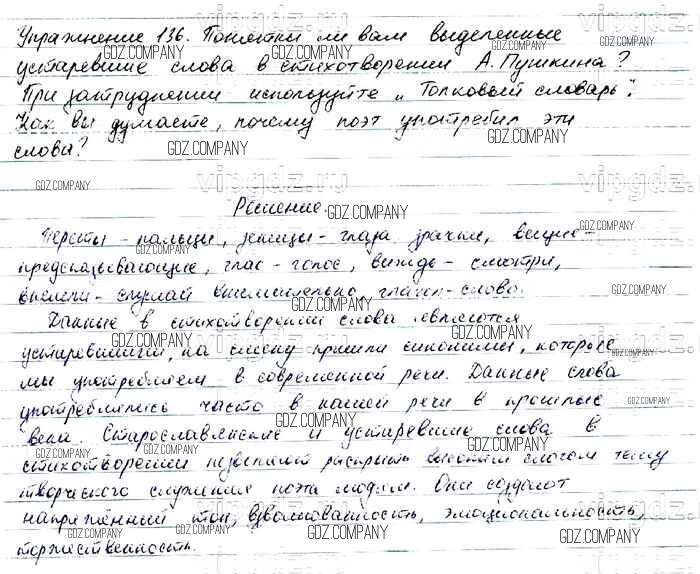 Упражнение 136. Понятны ли вам выделенные
устаревшие слова в стихотворении А. Пушкина?
При затруднении используйте „Толковый словарь".
Как вы думаете, почему поэт употребил эти
слова?
Решение.
Персты - пальцы, зеницы - глаза, зрачки, вещие -
предсказывающие, глас - голос, виждь - смотри,
внемли - слушай внимательно, глагол - слово.
Данные в стихотворении слова являются
устаревшими, на смену пришли синонимы, которые
мы употребляем в современной речи. Данные слова
употреблялись часто в нашей речи в прошлые
века. Старославянские и устаревшие слова в
стихотворении позволяют раскрыть высоким слогом тему
творческого служения поэта людям. Они создают
напряжённый тон, взволнованность, эмоциональность,
торжественность.
GDZ.COMPANY
vipgdz.ru